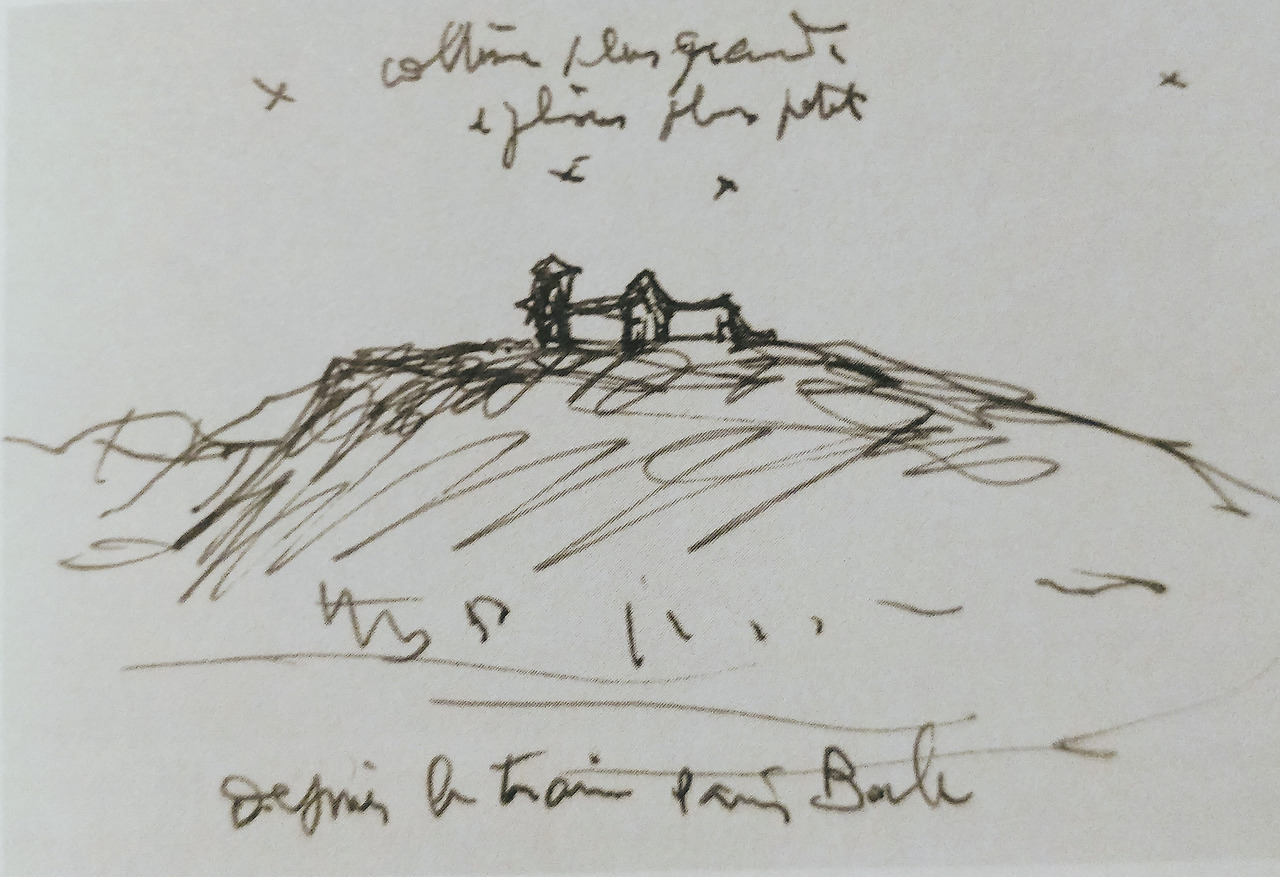 colline plus grande
église plus petite
x x
x x
depuis le train Paris Bâle